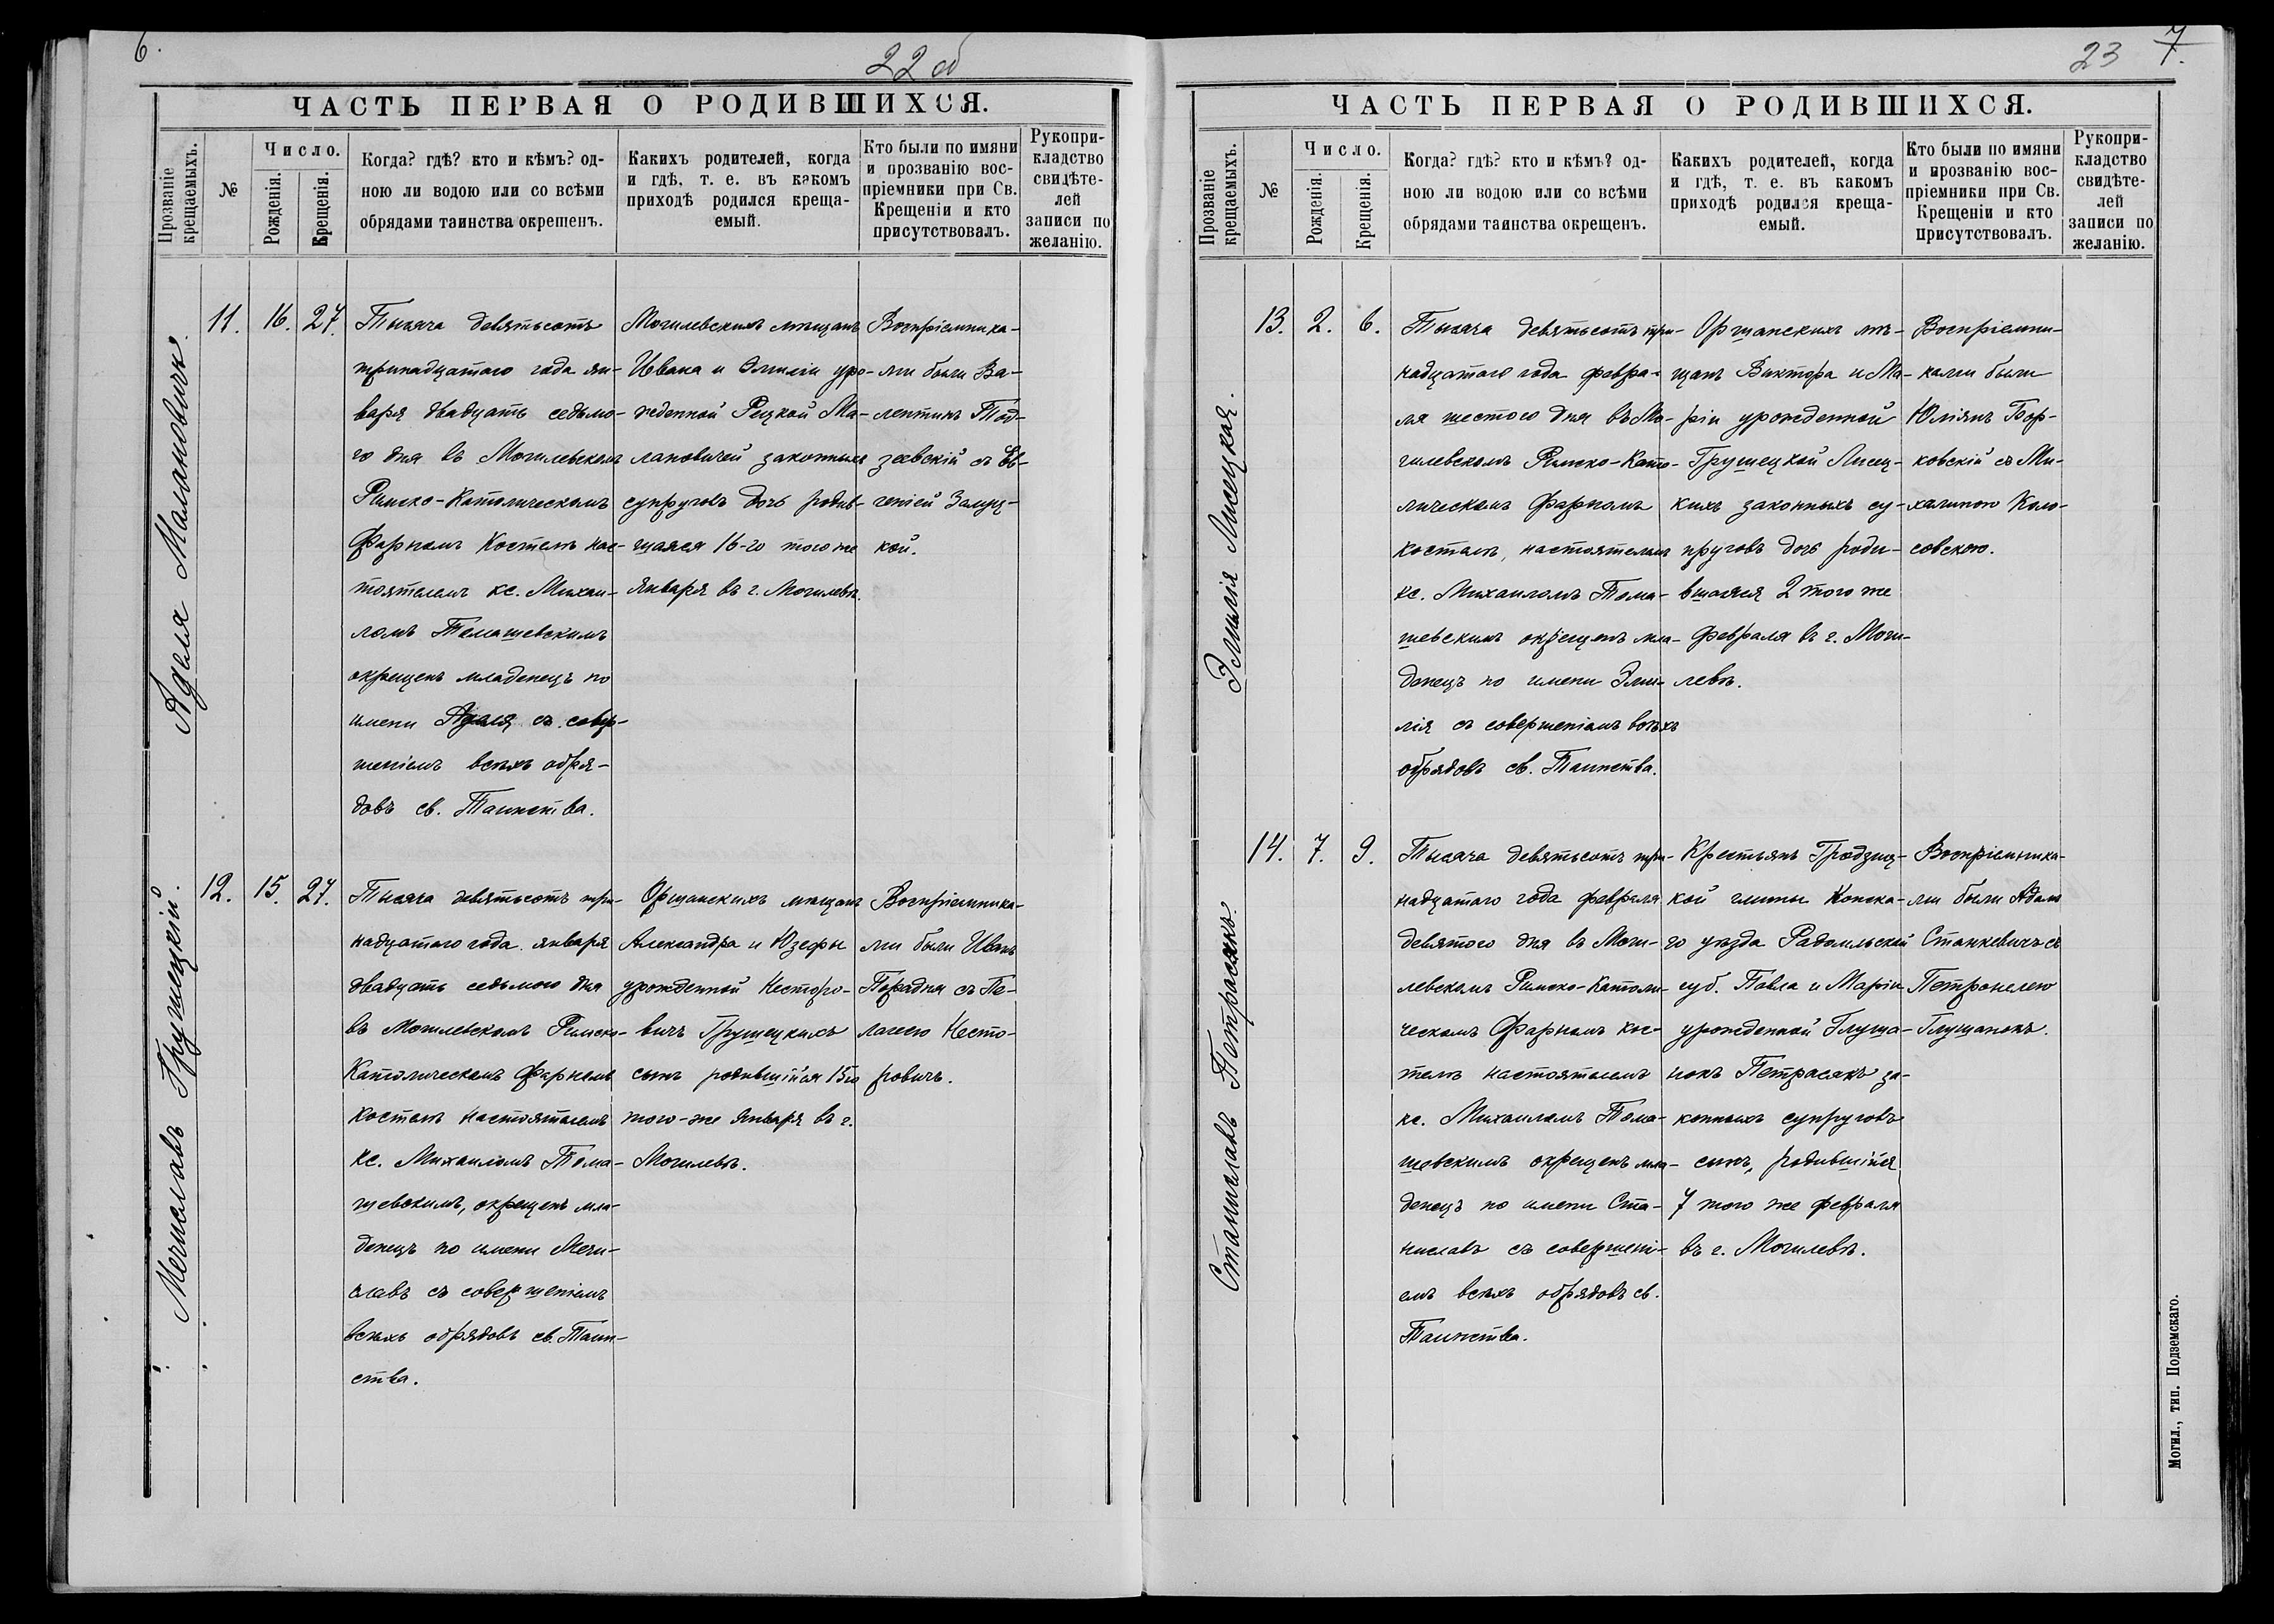 6.
22 об
ЧАСТЬ ПЕРВАЯ О РОДИВШИХСЯ.
Прозваніе крещаемыхъ.
№
Число.
Рожденія.
Крещенія.
Когда? гдѣ? кто и кѣмъ? од-
ною ли водою или со всѣми
обрядами таинства окрещенъ.
Какихъ родителей, когда
и гдѣ, т. е. въ какомъ
приходѣ родился креща-
емый.
Кто были по имяни
и прозванію вос-
пріемники при Св.
Крещеніи и кто
присутствовалъ.
Рукопри-
кладство
свидѣте-
лей
записи по
желанію.
Аделя Малановичъ.
11. 16. 27.
Тысяча девятьсотъ
тринадцатого года ян-
варя двадцать седьмо-
го дня въ Могилевскомъ
Римско-Католическомъ
Фарномъ Костелѣ нас-
тоятелемъ кс. Михаи-
ломъ Томашевскимъ
окрещенъ младенецъ по
имени Аделя съ совер-
шеніемъ всѣхъ обря-
довъ св. Таинства.
Могилевскихъ мѣщанъ
Ивана и Эмиліи уро-
жденной Рецкой Ма-
лановичей законныхъ
супруговъ дочь родив-
шаяся 16-го того же
Января въ г. Могилевѣ.
Воспріемника-
ми были Ва-
лентинъ Тод-
зевскій съ Ев-
геніей Залуц-
кой.
Мечиславъ Грушецкій.
12. 15. 27.
Тысяча девятьсотъ три-
надцатого года января
двадцать седьмого дня
въ Могилевскомъ Римско-
Католическомъ Фарномъ
костелѣ настоятелемъ
кс. Михаиломъ Тома-
шевскимъ, окрещенъ мла-
денецъ по имени Мечи-
славъ съ совершеніемъ
всѣхъ обрядовъ св. Таин-
ства.
Оршанскихъ мѣщанъ
Александра и Юзефы
урожденной Несторо-
вичъ Грушецкихъ
сынъ родившійся 15го
того-же Января въ г.
Могилевѣ.
Воспріемника-
ми были Иванъ
Порадня съ Пе-
лагеею Несто-
ровичъ.
23 7.
ЧАСТЬ ПЕРВАЯ О РОДИВШИХСЯ.
Прозваніе крещаемыхъ.
№
Число.
Рожденія.
Крещенія.
Когда? гдѣ? кто и кѣмъ? од-
ною ли водою или со всѣми
обрядами таинства окрещенъ.
Какихъ родителей, когда
и гдѣ, т. е. въ какомъ
приходѣ родился креща-
емый.
Кто были по имяни
и прозванію вос-
пріемники при Св.
Крещеніи и кто
присутствовалъ.
Рукопри-
кладство
свидѣте-
лей
записи по
желанію.
Эмилія Лисецкая.
13. 2. 6.
Тысяча девятьсотъ три-
надцатого года февра-
ля шестого дня въ Мо-
гилевскомъ Римско-Като-
лическомъ Фарномъ
костелѣ, настоятелемъ
кс. Михаиломъ Тома-
шевскимъ окрещенъ мла-
денецъ по имени Эми-
лія съ совершеніемъ всѣхъ
обрядовъ св. Таинства.
Оршанскихъ мѣ-
щанъ Виктора и Ма-
ріи урожденной
Грушецкой Лисец-
кихъ законныхъ су-
пруговъ дочь роди-
вшаяся 2 того же
Февраля въ г. Моги-
левѣ.
Воспріемни-
ками были
Юліянъ Бор-
ковскій съ Ми-
халиною Коло-
совскою.
Станиславъ Петрасякъ.
14. 7. 9.
Тысяча девятьсотъ три-
надцатого года февраля
девятого дня въ Моги-
левскомъ Римско-Католи-
ческомъ Фарномъ кос-
телѣ настоятелемъ
кс. Михаиломъ Тома-
шевскимъ окрещенъ мла-
денецъ по имени Ста-
ниславъ съ совершені-
емъ всѣхъ обрядовъ св.
Таинства.
Крестьянъ Гродзиц-
кой гмины Конска-
го уѣзда Радомльской
губ. Павла и Маріи
урожденной Глуща-
нокъ Петрасякъ за-
конныхъ супруговъ
сынъ, родившійся
7 того же февраля
въ г. Могилевѣ.
Воспріемника-
ми были Адамъ
Станкевичъ съ
Петронелею
Глущанокъ.
Могил., тип. Подземскаго.